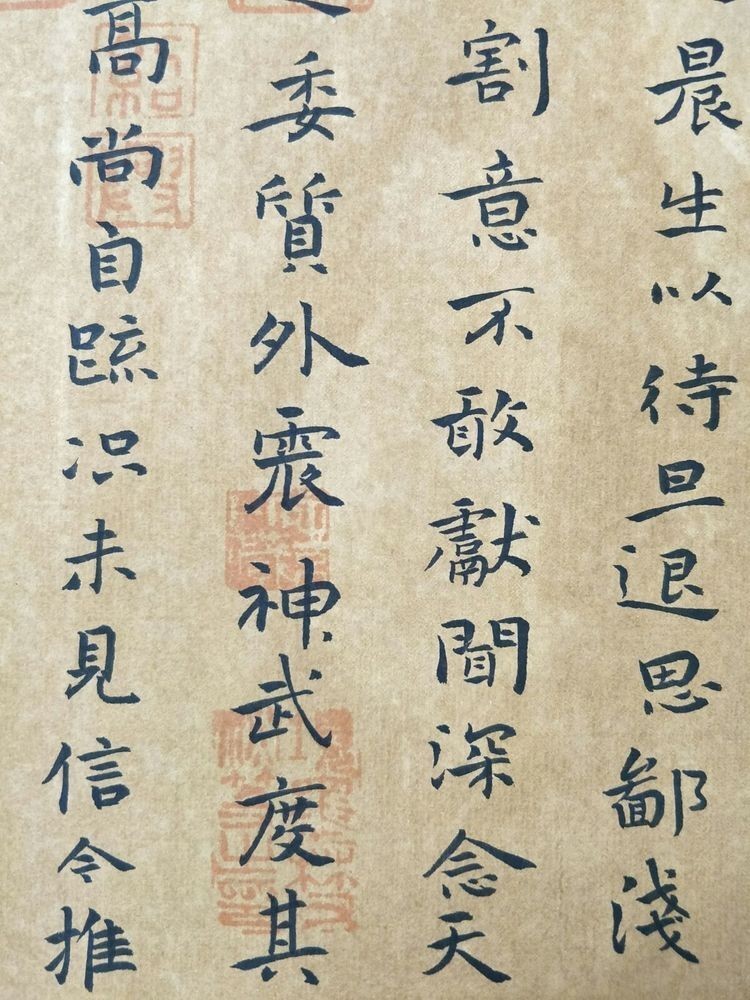 晨坐以待旦退思鄙淺
割意不敢獻聞深念天
委質外震神武度其
高尚自踈况未見信今推